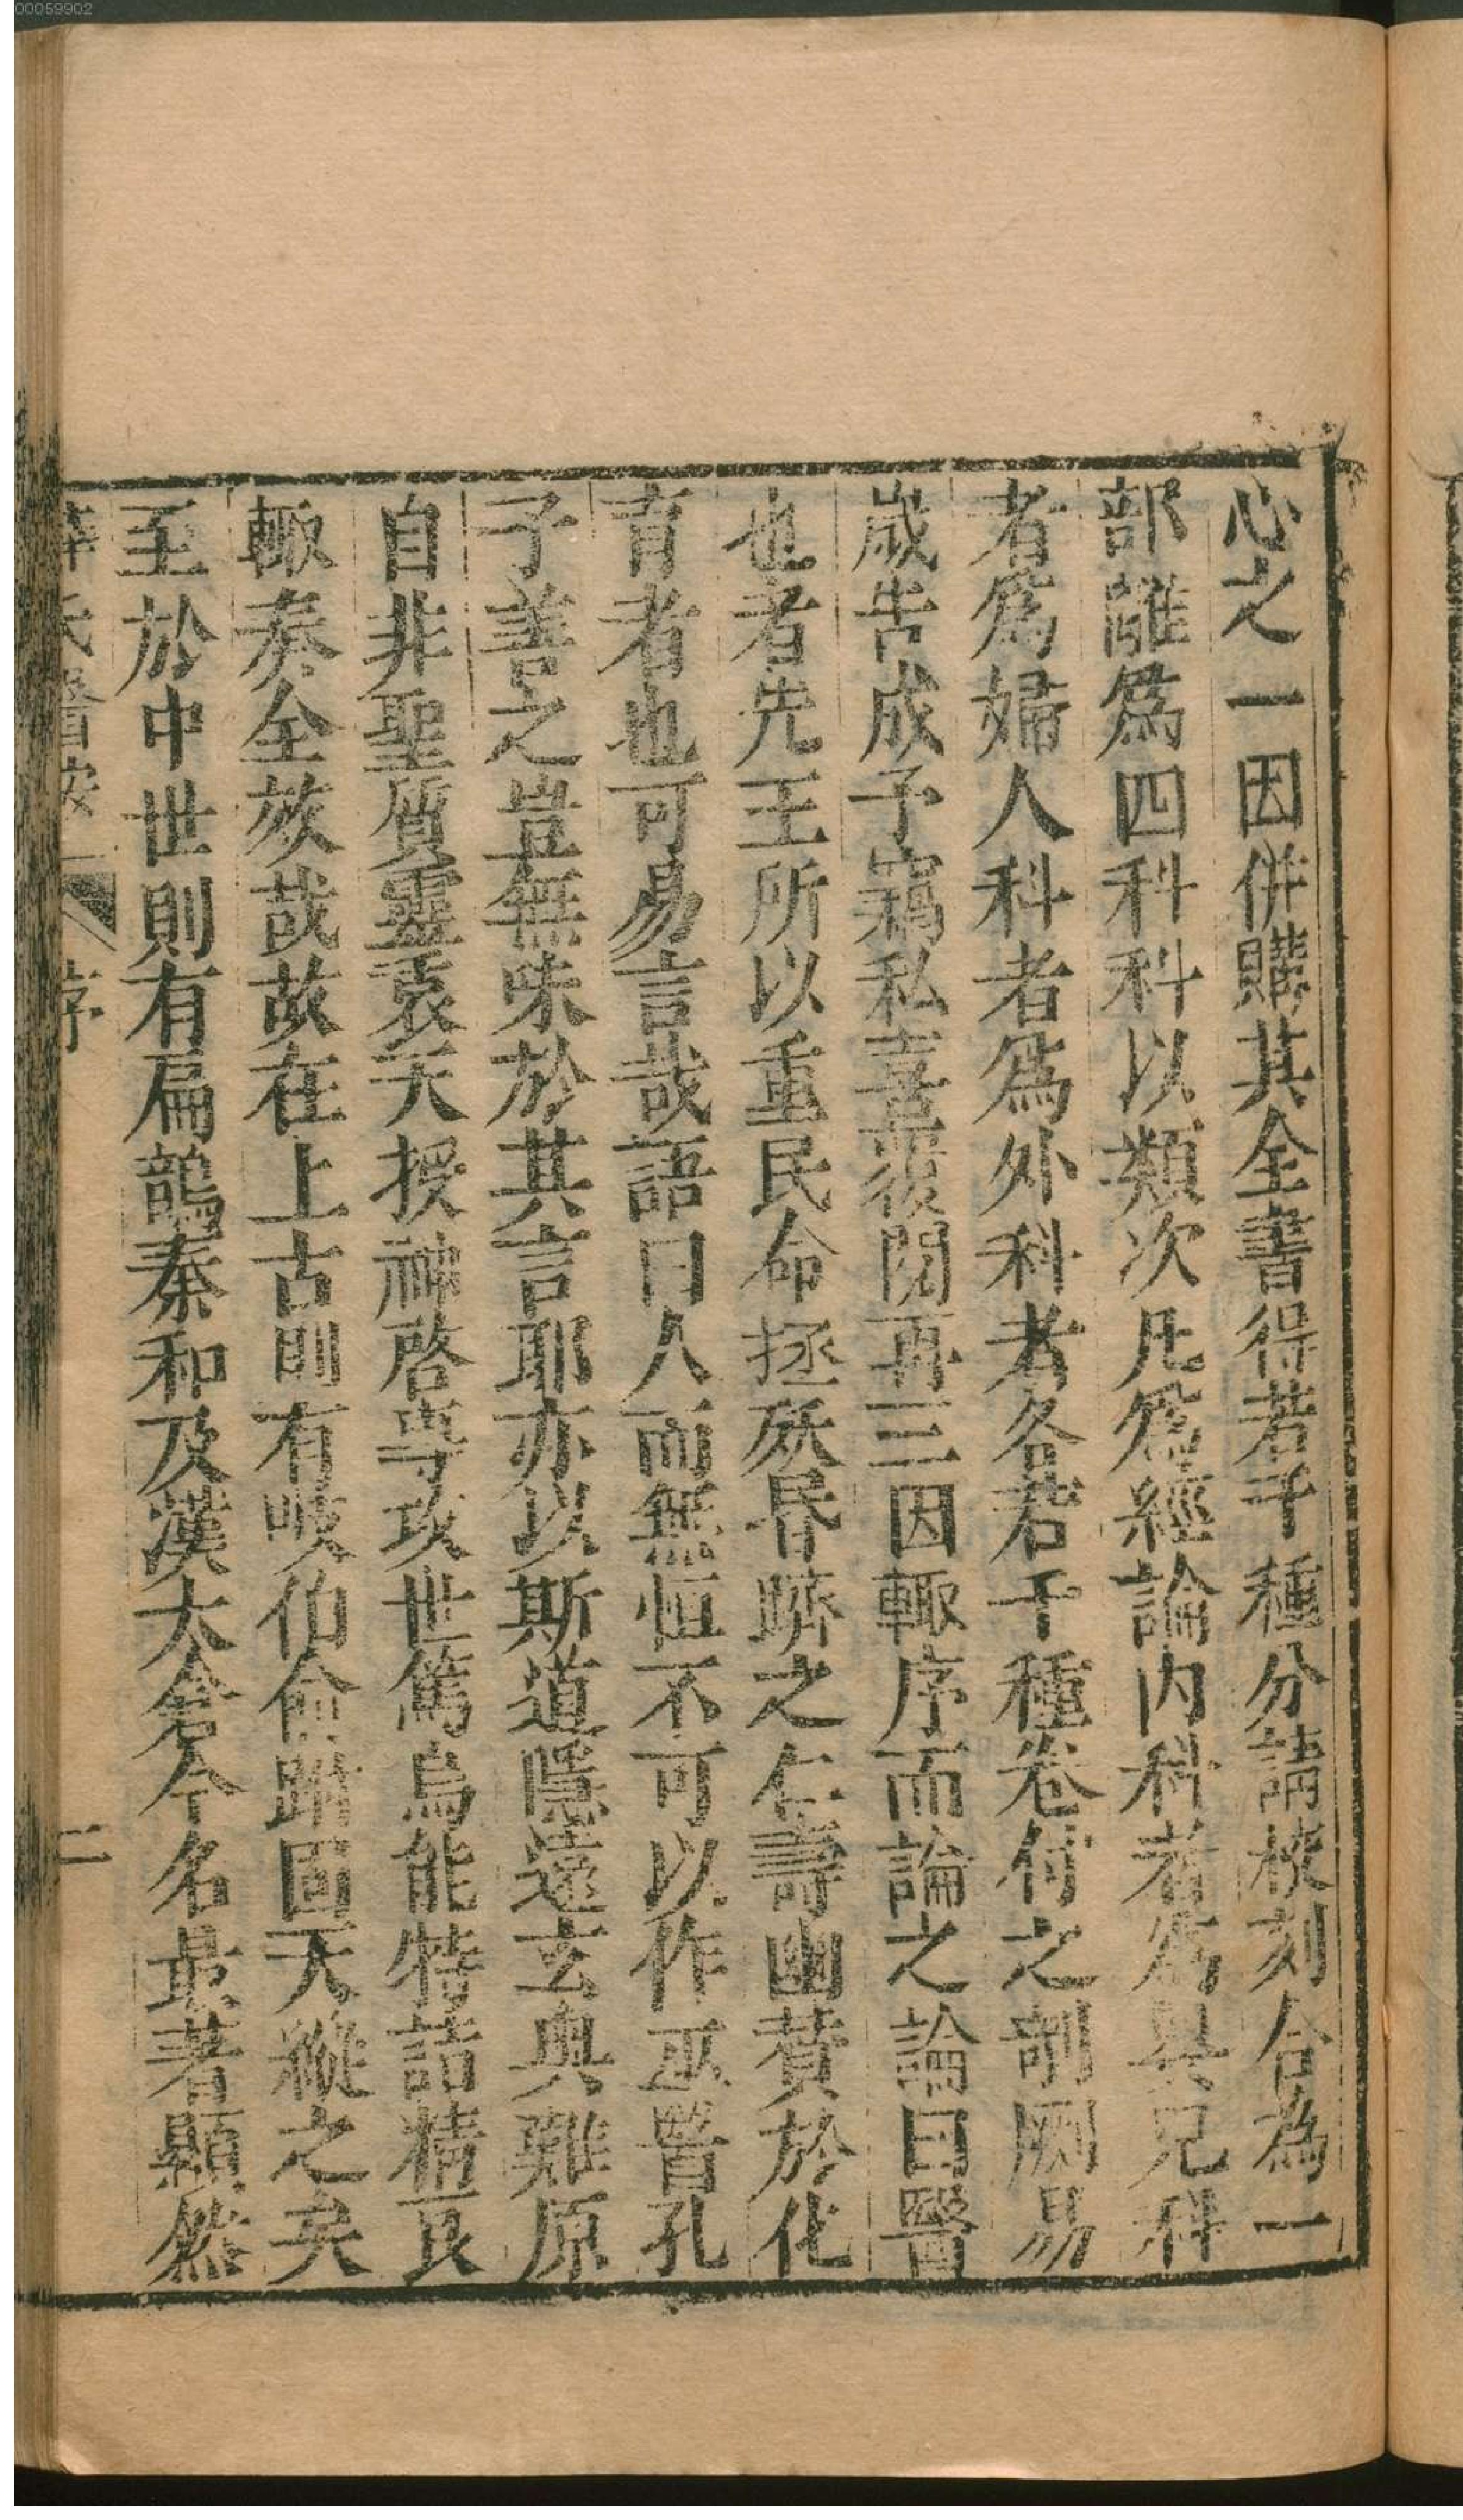 00059902
心之一因併購其全書得若干種分請校刻合為一
部離為四科科以類次凡為經論内科者為嬰兒科
者為婦人科者為外科者各若干種卷付之剞劂易
歲告成予竊私喜復閱再三因輙序而論之論曰醫
也者先王所以重民命拯殀昬躋之仁壽幽賛於化
育者也可易言哉語曰人而無恒不可以作巫醫孔
子善之豈無味於其言耶亦以斯道隱遠玄奧難原
自非聖質靈衷天授神啓専攻世篤烏能特詣精良
輙奏全效哉故在上古則有岐伯俞跗固天縱之矣
至於中世則有扁鵲秦和及漢太倉令名最著顯然
薛氏醫按 序 二